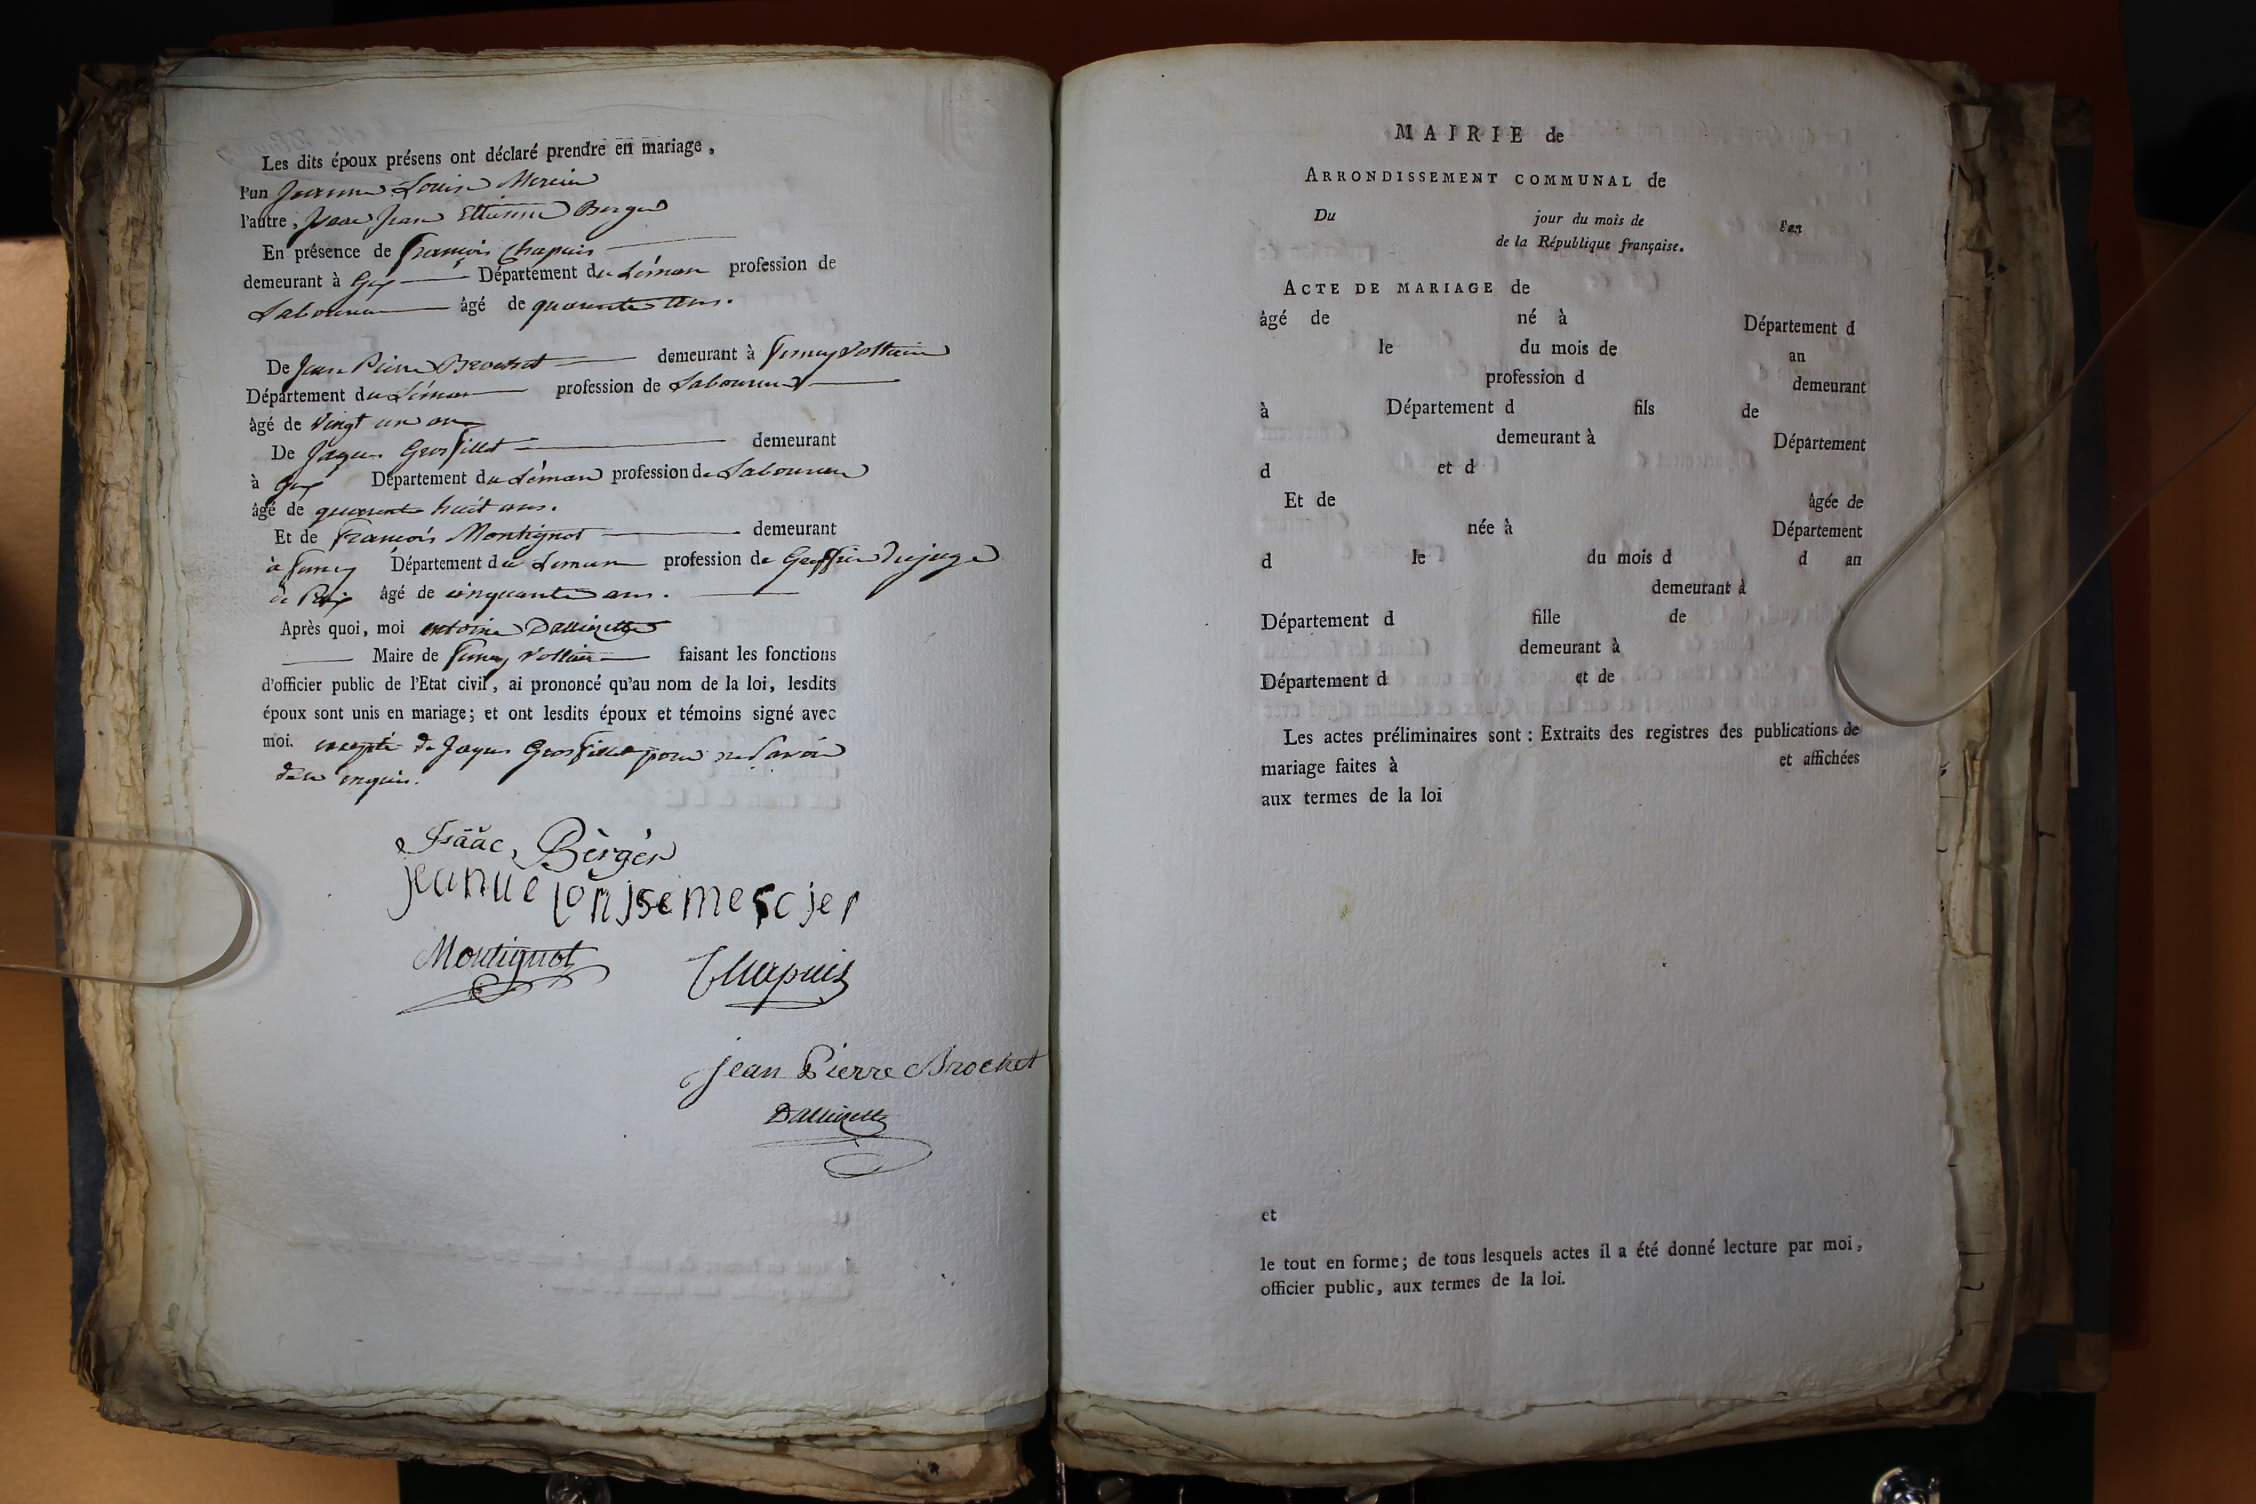 Les dits époux présens ont déclaré prendre en mariage,
l'un Jeanne Louise Mercier
l'autre, Isaac Jean Ettienne Berger
En présence de François Chapuis
demeurant à Gex Département du Léman profession de
Laboureur âgé de quarante ans.
De Jean Pierre Brochet demeurant à Ferney Voltaire
Département du Léman profession de Laboureur
âgé de vingt un ans
De Jaques Grosfillet demeurant
à Gex Département du Léman profession de Laboureur
âgé de quarante huit ans.
Et de François Montignot demeurant
à Ferney Département du Léman profession de Greffier du juge
de Paix âgé de cinquante ans.
Après quoi, moi antoine
Maire de Ferney Voltaire faisant les fonctions
d'officier public de l'Etat civil, ai prononcé qu'au nom de la loi, lesdits
époux sont unis en mariage; et ont lesdits époux et témoins signé avec
moi. excepté de Jaques Grosfillet pour ne savoir
de ce enquis.
Isaac Bèrgér
jeanne louise mercier
Montignot Chapuis
jean Pierre Brochet
MAIRIE de
ARRONDISSEMENT COMMUNAL de
Du jour du mois de l'an
de la République française.
ACTE DE MARIAGE de
âgé de né à Département d
le du mois de an
profession d demeurant
à Département d fils de
demeurant à Département
d et d
Et de âgée de
née à Département
d le du mois d d an
demeurant à
Département d fille de
demeurant à
Département d et de
Les actes préliminaires sont : Extraits des registres des publications de
mariage faites à et affichées
aux termes de la loi
et
le tout en forme; de tous lesquels actes il a été donné lecture par moi,
officier public, aux termes de la loi.